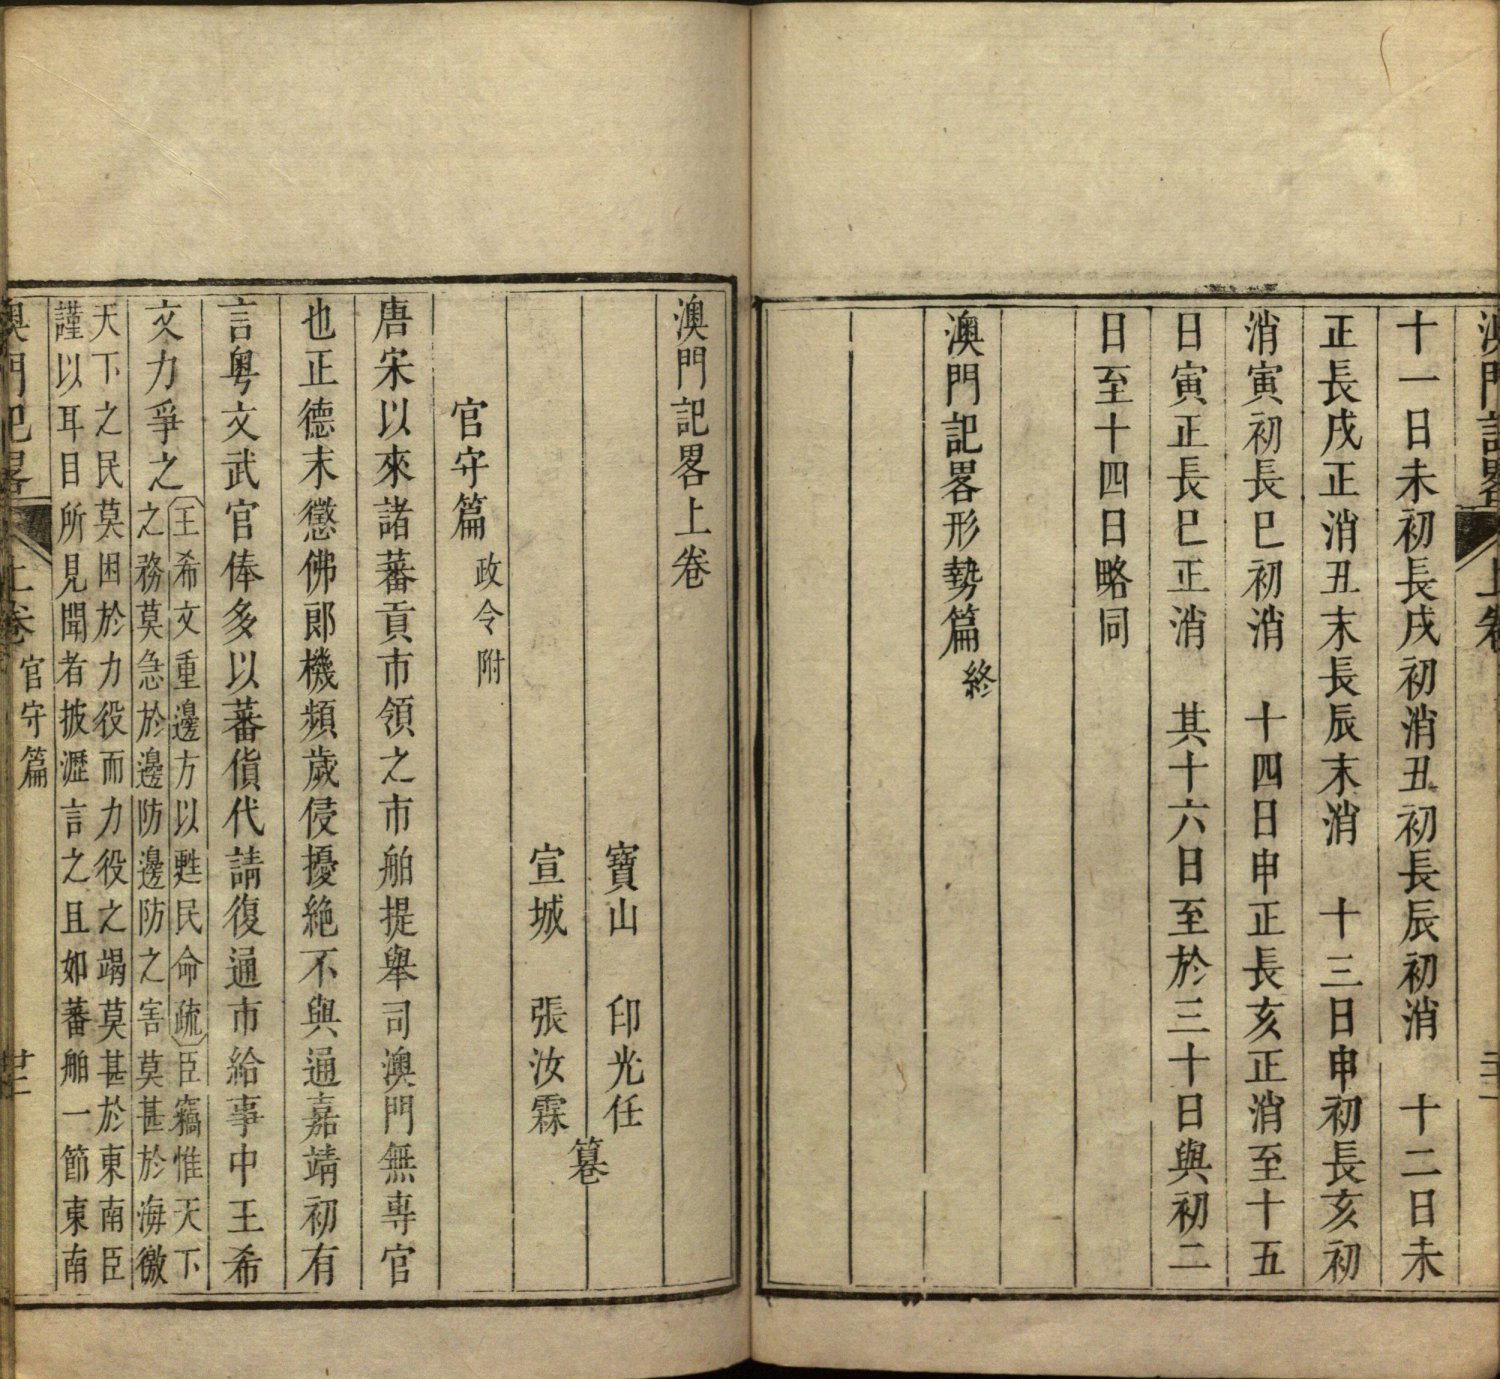 十一日未初長戌初消丑初長辰初消　十二日未
正長戌正消丑末長辰末消　十三日申初長亥初
消寅初長巳初消　十四日申正長亥正消至十五
日寅正長巳正消　其十六日至於三十日與初二
日至十四日略同
澳門記畧形勢篇終
澳門記畧上卷
寶山　印光任
宣城　張汝霖
篹
官守篇政令附
唐宋以來諸蕃貢市領之市舶提舉司澳門無專官
也正德末懲佛郎機頻歲侵擾絶不與通嘉靖初有
言粤文武官俸多以蕃貨代請復通市給事中王希
文力爭之
王希文重邊方以甦民命疏臣竊惟天下
之務莫急於邊防邊防之害莫甚於海徼
天下之民莫困於力役而力役之竭莫甚於東南臣
謹以耳目所見聞者披瀝言之且如蕃舶一節東南
澳門記畧
上卷
官守篇